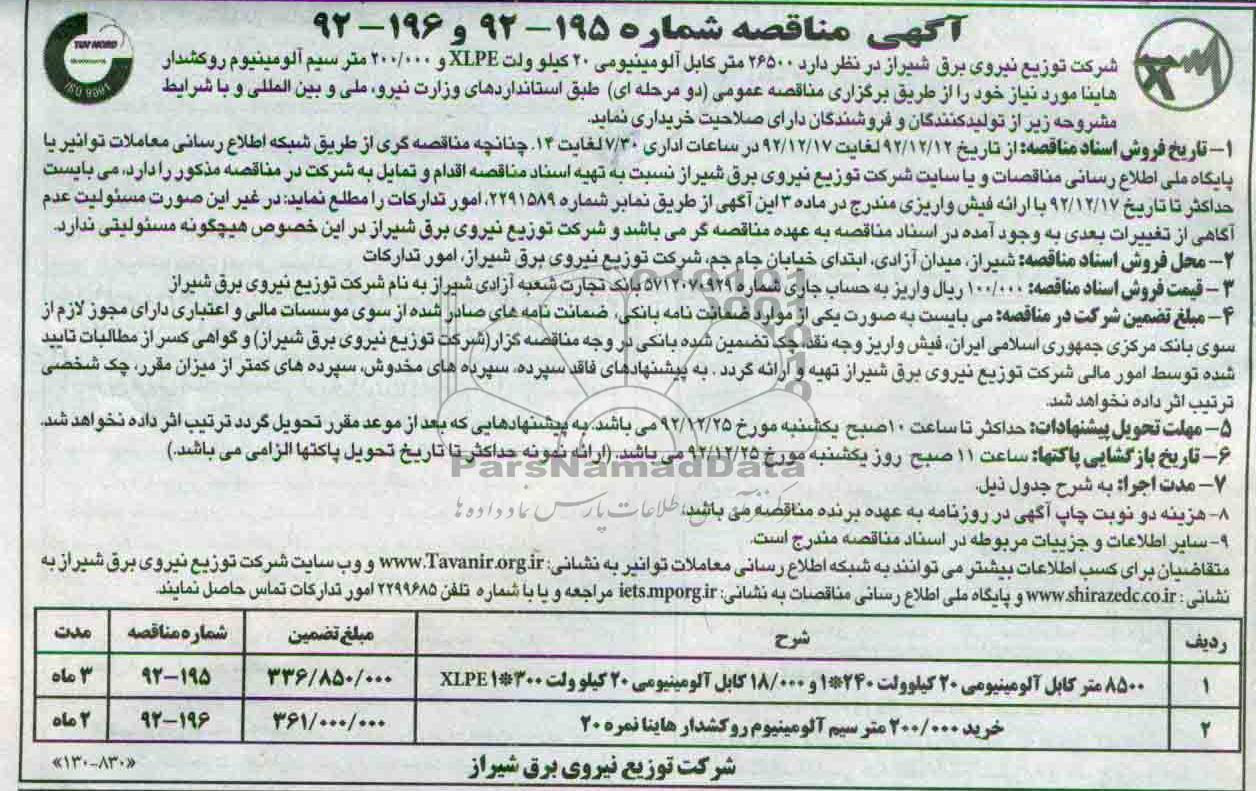 آگهی مناقصه شماره ۱۹۵-۹۲ و ۱۹۶-۹۲
TUV NORD
ISO 9001
شرکت توزیع نیروی برق شیراز در نظر دارد ۲۶۵۰۰ متر کابل آلومینیومی ۲۰ کیلو ولت XLPE و ۲۰۰/۰۰۰ متر سیم آلومینیوم روکشدار
هاینا مورد نیاز خود را از طریق برگزاری مناقصه عمومی (دو مرحله ای) طبق استانداردهای وزارت نیرو، ملی و بین المللی و با شرایط
مشروحه زیر از تولیدکنندگان و فروشندگان دارای صلاحیت خریداری نماید.
۱- تاریخ فروش اسناد مناقصه: از تاریخ ۹۲/۱۲/۱۲ لغایت ۹۲/۱۲/۱۷ در ساعات اداری ۷/۳۰ لغایت ۱۴. چنانچه مناقصه گری از طریق شبکه اطلاع رسانی معاملات توانیر یا
پایگاه ملی اطلاع رسانی مناقصات و یا سایت شرکت توزیع نیروی برق شیراز نسبت به تهیه اسناد مناقصه اقدام و تمایل به شرکت در مناقصه مذکور را دارد، می بایست
حداکثر تا تاریخ ۹۲/۱۲/۱۷ با ارائه فیش واریزی مندرج در ماده ۳ این آگهی از طریق نمابر شماره ۲۲۹۱۵۸۹، امور تدارکات را مطلع نماید: در غیر این صورت مسئولیت عدم
آگاهی از تغییرات بعدی به وجود آمده در اسناد مناقصه به عهده مناقصه گر می باشد و شرکت توزیع نیروی برق شیراز در این خصوص هیچگونه مسئولیتی ندارد.
۲- محل فروش اسناد مناقصه: شیراز، میدان آزادی، ابتدای خیابان جام جم، شرکت توزیع نیروی برق شیراز، امور تدارکات
۳- قیمت فروش اسناد مناقصه: ۱۰۰/۰۰۰ ریال واریز به حساب جاری شماره ۵۷۱۲۰۷۰۹۲۹ بانک تجارت شعبه آزادی شیراز به نام شرکت توزیع نیروی برق شیراز
۴- مبلغ تضمین شرکت در مناقصه: می بایست به صورت یکی از موارد ضمانت نامه بانکی، ضمانت نامه های صادر شده از سوی موسسات مالی و اعتباری دارای مجوز لازم از
سوی بانک مرکزی جمهوری اسلامی ایران، فیش واریز وجه نقد، چک تضمین شده بانکی در وجه مناقصه گزار (شرکت توزیع نیروی برق شیراز) و گواهی کسر از مطالبات تایید
شده توسط امور مالی شرکت توزیع نیروی برق شیراز تهیه و ارائه گردد. به پیشنهادهای فاقد سپرده، سپرده های مخدوش، سپرده های کمتر از میزان مقرر، چک شخصی
ترتیب اثر داده نخواهد شد.
۵- مهلت تحویل پیشنهادات: حداکثر تا ساعت ۱۰ صبح یکشنبه مورخ ۹۲/۱۲/۲۵ می باشد. به پیشنهادهایی که بعد از موعد مقرر تحویل گردد ترتیب اثر داده نخواهد شد.
۶- تاریخ بازگشایی پاکتها: ساعت ۱۱ صبح روز یکشنبه مورخ ۹۲/۱۲/۲۵ می باشد. (ارائه نمونه حداکثر تا تاریخ تحویل پاکتها الزامی می باشد.)
ParsNamadData
۷- مدت اجرا: به شرح جدول ذیل.
۸- هزینه دو نوبت چاپ آگهی در روزنامه به عهده برنده مناقصه می باشد.
۹- سایر اطلاعات و جزییات مربوطه در اسناد مناقصه مندرج است.
متقاضیان برای کسب اطلاعات بیشتر می توانند به شبکه اطلاع رسانی معاملات توانیر به نشانی: www.Tavanir.org.ir و وب سایت شرکت توزیع نیروی برق شیراز به
نشانی: www.shirazedc.co.ir و پایگاه ملی اطلاع رسانی مناقصات به نشانی: iets.mporg.ir مراجعه و یا با شماره تلفن ۲۲۹۹۶۸۵ امور تدارکات تماس حاصل نمایند.
ردیف شرح مبلغ تضمین شماره مناقصه مدت
۱ ۸۵۰۰ متر کابل آلومینیومی ۲۰ کیلوولت ۲۴۰*۱ و ۱۸/۰۰۰ کابل آلومینیومی ۲۰ کیلو ولت ۳۰۰*۱ XLPE ۳۳۶/۸۵۰/۰۰۰ ۹۲-۱۹۵ ۳ ماه
۲ خرید ۲۰۰/۰۰۰ متر سیم آلومینیوم روکشدار هاینا نمره ۲۰ ۳۶۱/۰۰۰/۰۰۰ ۹۲-۱۹۶ ۲ ماه
شرکت توزیع نیروی برق شیراز
«۱۳۰-۸۳۰»